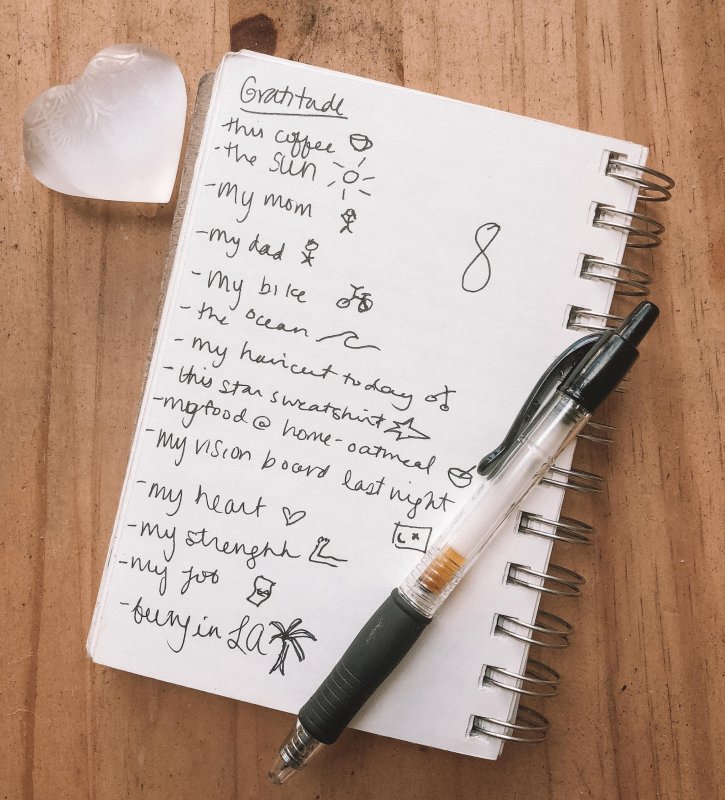 Gratitude
-this coffee
-the sun
-my mom
-my dad
8
-my bike
-the ocean
-my haircut today
-this star sweatshirt
-my food @ home-oatmeal
-my vision board last night
-my heart
-my strength
-my job
-being in LA